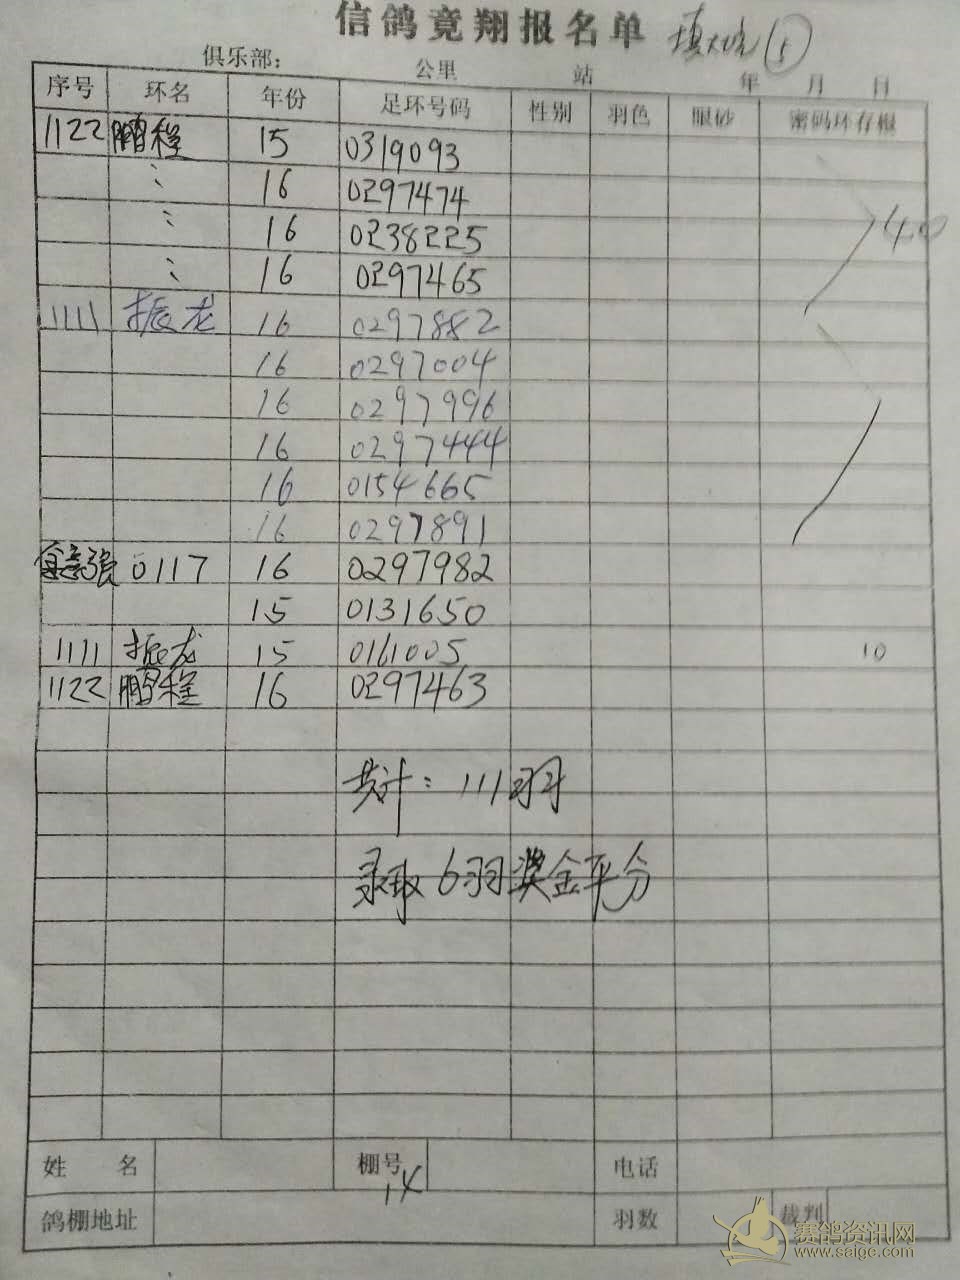 信鸽竟翔报名单 填大坑 ⑤
俱乐部： 公里 站 年 月 日
序号 环名 年份 足环号码 性别 羽色 眼砂 密码环存根
1122 鹏程 15 0319093
16 0297474
16 0238225 40
16 0297465
1111 振龙 16 0297882
16 0297004
16 0297996
16 0297444
16 0154665
16 0297891
0117 16 0297982
15 0131650
1111 振龙 15 0161005 10
1122 鹏程 16 0297463
共计：111羽
录取6羽奖金平分
姓名 棚号 电话
14
鸽棚地址 羽数 裁判
赛鸽资讯网
www.saigc.com